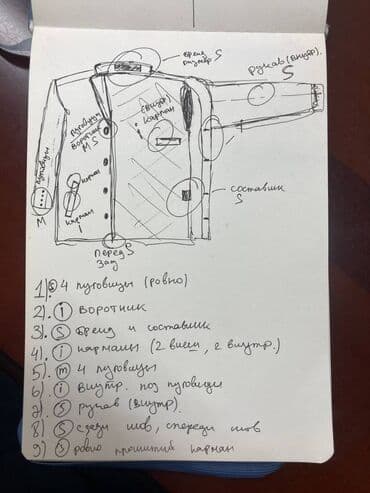 бренд S
размер
рукав (внутр).
S
пуговицы
воротник
M S
(внутр)
карман
пуговицы
M
карман
карман
i
составник
S
перед S
зад
1). S 4 пуговицы (ровно)
2). i воротник
3). S бренд и составник
4). i карманы (2 внеш, 2 внутр.)
5). m 4 пуговицы
6). i внутр. под пуговицы
7). S рукав (внутр).
8) S сзади шов, спереди шов
9) S ровно прошитый карман